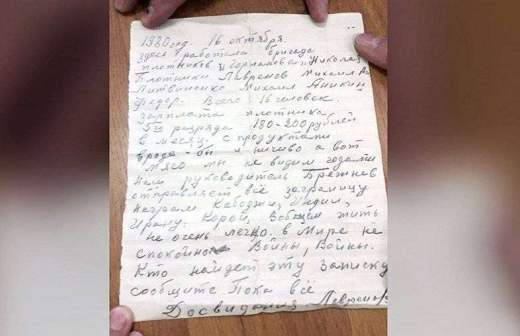 1980 год. 16 октября.
Здесь работала бригада
плотников Николай
Плотники Лавренов Михаил
Литвиненко Михаил Аникин
Федор. Всего 16 человек.
Зарплата плотника
5го разряда 180-200 рублей
в месяц. с продуктами
вроде бы и ничиво а вот
мясо мы не видим годами
наш руководитель Брежнев
отправляет всё заграницу
неграм Кободжи, Индии,
Ирану, Корой, вобщем жить
не очень легко. в мире не
спокойно Войны, Войны.
Кто найдет эту записку
сообщите. Пока всё
Досвидания